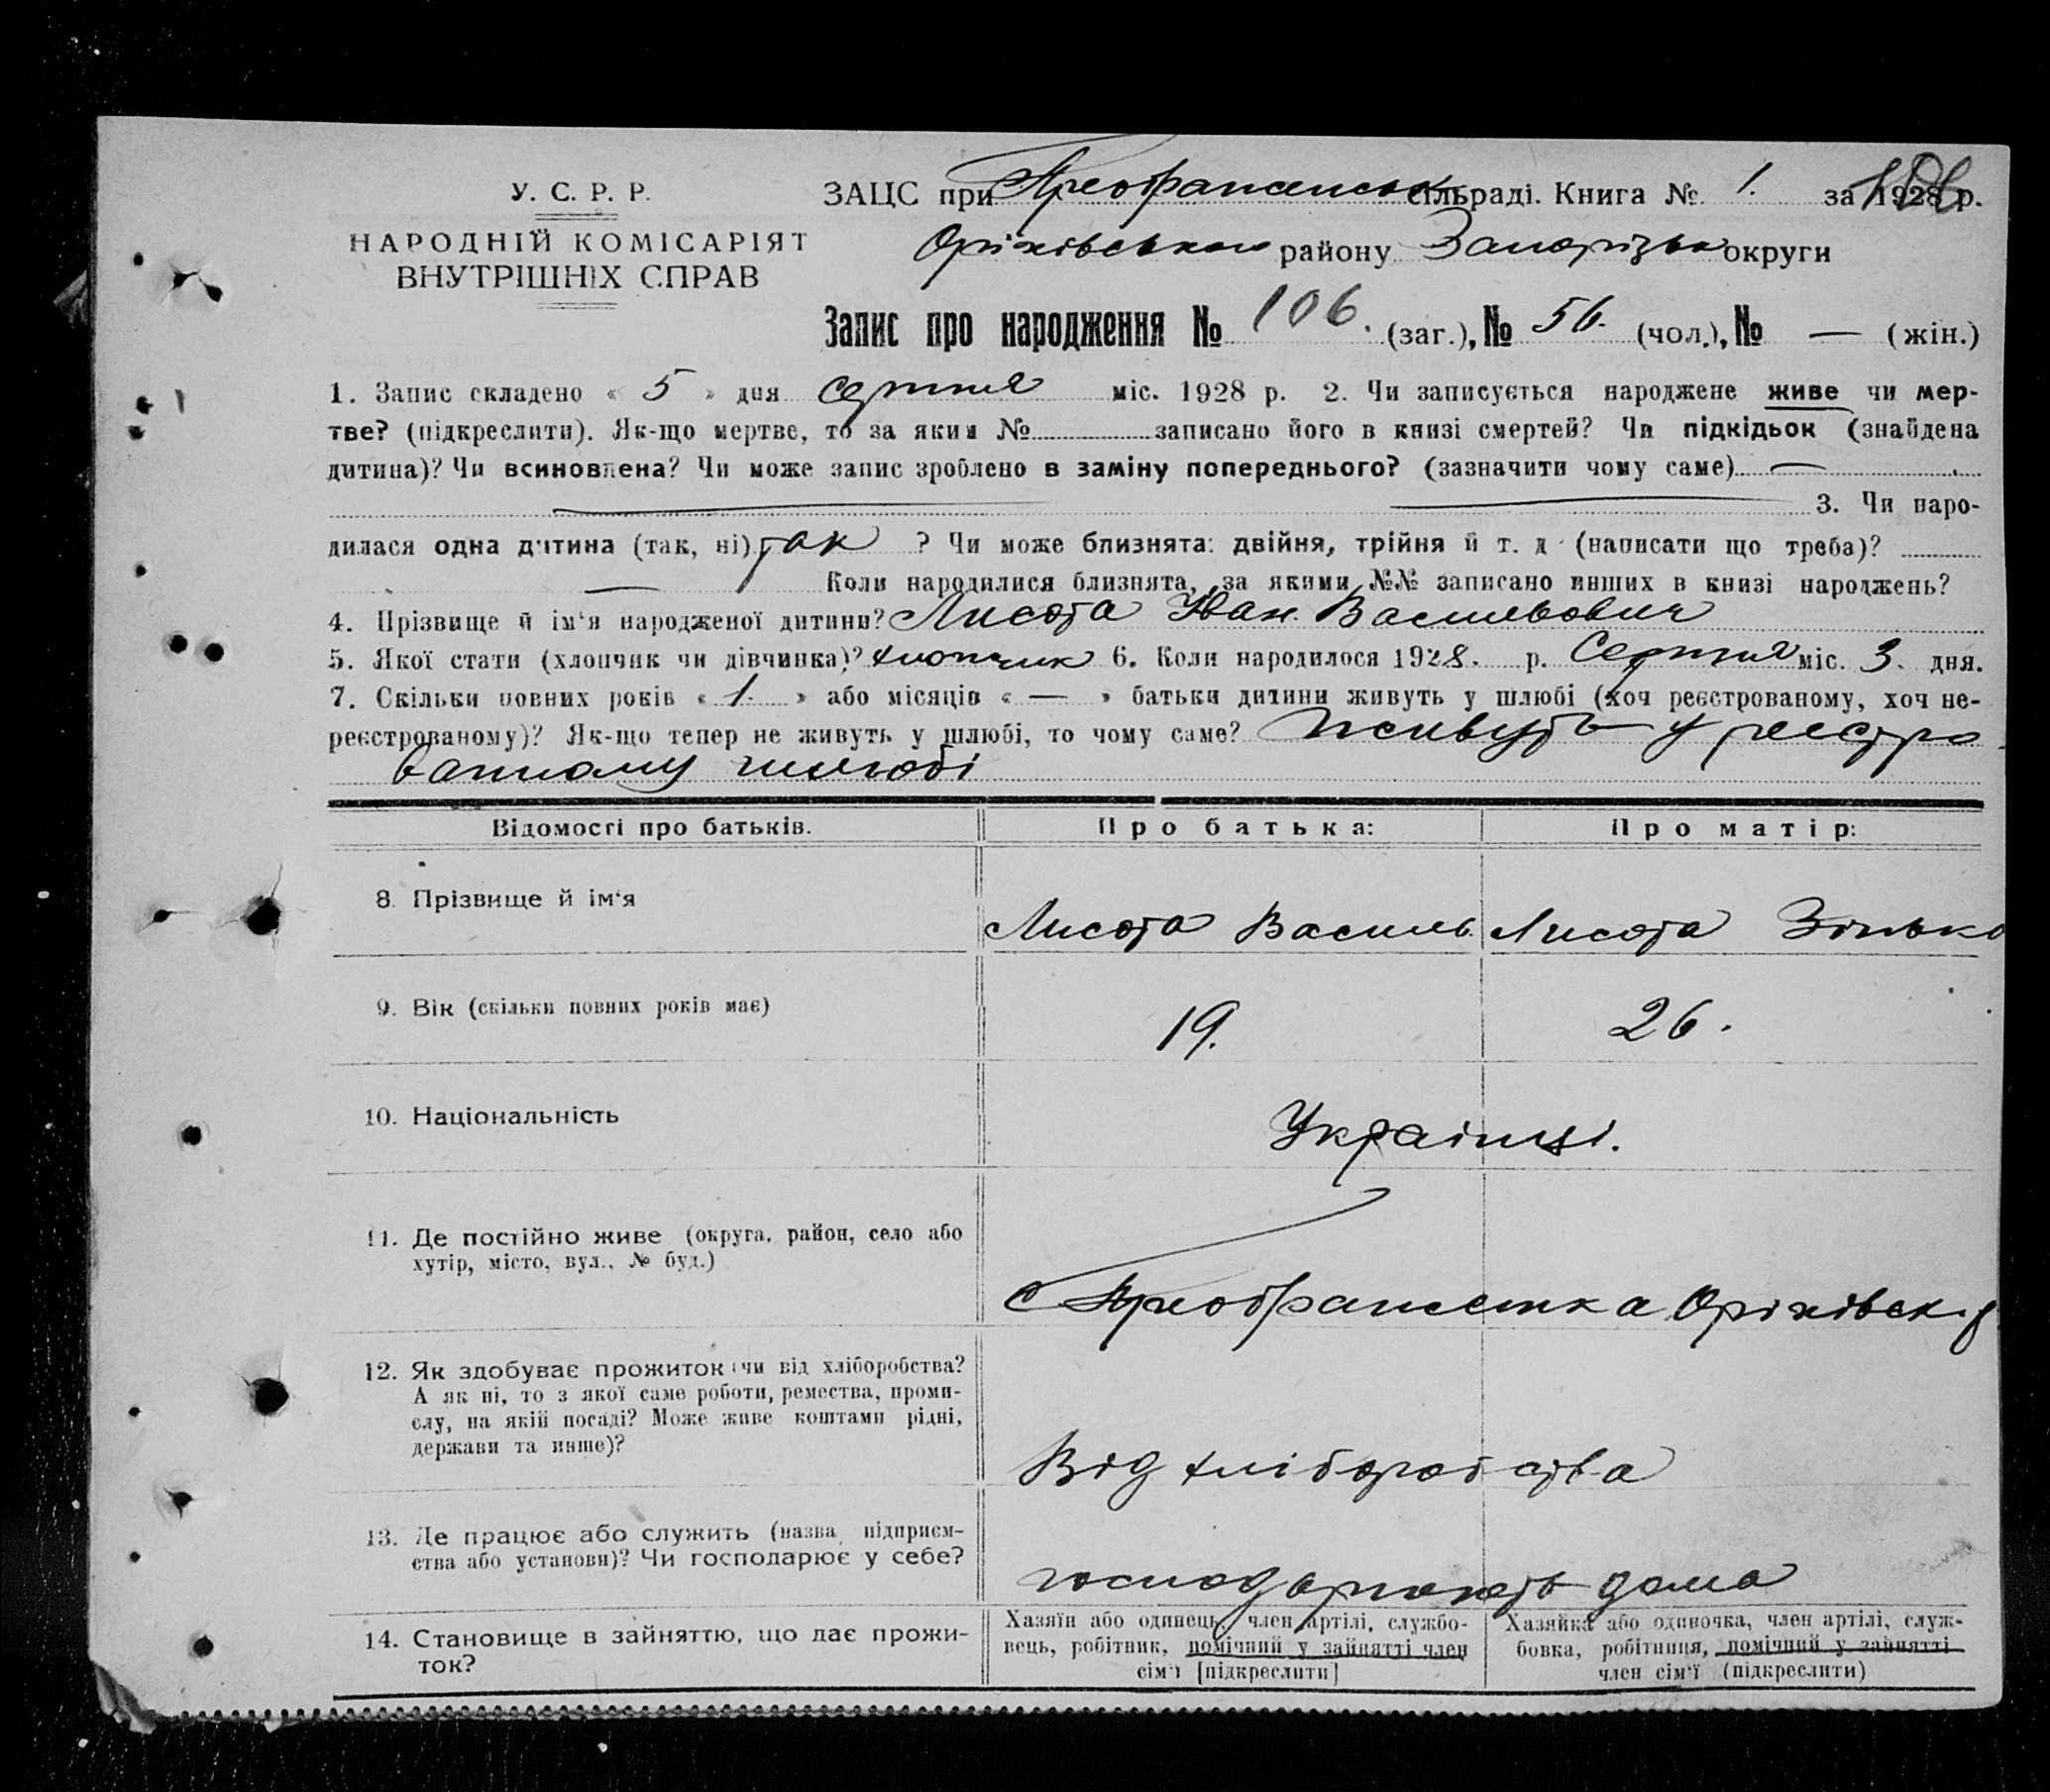 У. С. Р. Р.
НАРОДНІЙ КОМІСАРІЯТ
ВНУТРІШНІХ СПРАВ
ЗАЦС при Преображенськ сільраді. Книга № 1. за 1928 р.
Оріхівського району Запорізько округи
Запис про народження № 106. (заг.), № 56. (чол.), № — (жін.)
1. Запис складено « 5 » дня серпня міс. 1928 р. 2. Чи записується народжене живе чи мер-
тве? (підкреслити). Як-що мертве, то за яким № записано його в книзі смертей? Чи підкідьок (знайдена
дитина)? Чи всиновлена? Чи може запис зроблено в заміну попереднього? (зазначити чому саме) —
3. Чи наро-
дилася одна дитина (так, ні) так ? Чи може близнята: двійня, трійня й т. д. (написати що треба)?
— Коли народилися близнята, за якими №№ записано инших в книзі народжень?
4. Прізвище й ім'я народженої дитини? Лисота Іван Васильович
5. Якої стати (хлопчик чи дівчинка)? хлопчик 6. Коли народилося 1928. р. Серпня міс. 3. дня.
7. Скільки повних років « 1. » або місяців « — » батьки дитини живуть у шлюбі (хоч реєстрованому, хоч не-
реєстрованому)? Як-що тепер не живуть у шлюбі, то чому саме? живуть у реєстро
ванному шлюбі
Відомості про батьків. Про батька: Про матір:
8. Прізвище й ім'я Лисота Василь Лисота Зінька
9. Вік (скільки повних років має) 19. 26.
10. Національність Українці.
11. Де постійно живе (округа, район, село або
хутір, місто, вул., № буд.)
с Преображенка Оріхівськ. р
12. Як здобуває прожиток (чи від хліборобства?
А як ні, то з якої саме роботи, ремества, проми-
слу, на якій посаді? Може живе коштами рідні,
держави та инше)?
Від хліборобства
13. Де працює або служить (назва підприєм-
ства або установи)? Чи господарює у себе?
господарюють дома
14. Становище в зайняттю, що дає прожи-
ток?
Хазяїн або одинець, член артілі, службо-
вець, робітник, помічний у зайнятті член
сім'ї [підкреслити]
Хазяйка або одиночка, член артілі, служ-
бовка, робітниця, помічний у зайнятті
член сім'ї (підкреслити)